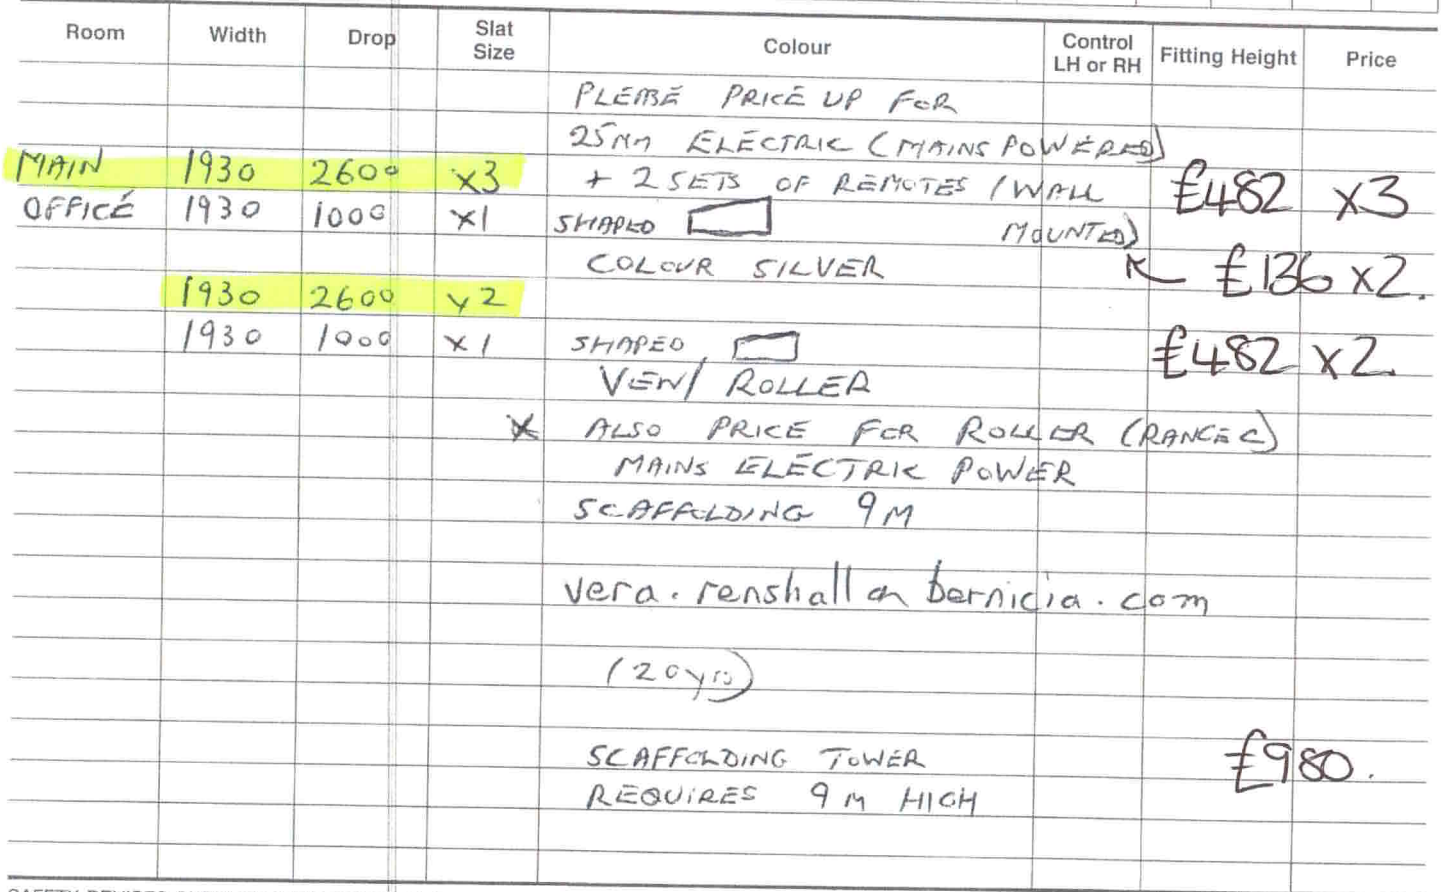 Room Width Drop Slat Size Colour Control LH or RH Fitting Height Price
PLEASE PRICE UP FOR
25MM ELECTRIC (MAINS POWERED)
MAIN 1930 2600 x3 + 2 SETS OF REMOTES (WALL £482 x3
OFFICE 1930 1000 x1 SHAPED MOUNTED)
COLOUR SILVER £136 x2.
1930 2600 x2
1930 1000 x1 SHAPED £482 x2.
VIEW/ ROLLER
X ALSO PRICE FOR ROLLER (RANGE C)
MAINS ELECTRIC POWER
SCAFFOLDING 9M
vera.renshall bernicia.com
(20yrs)
SCAFFOLDING TOWER £980.
REQUIRES 9M HIGH